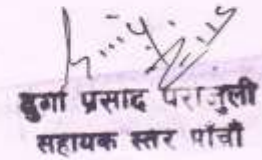 दुर्गा प्रसाद पराजुली
सहायक स्तर पाँचौ